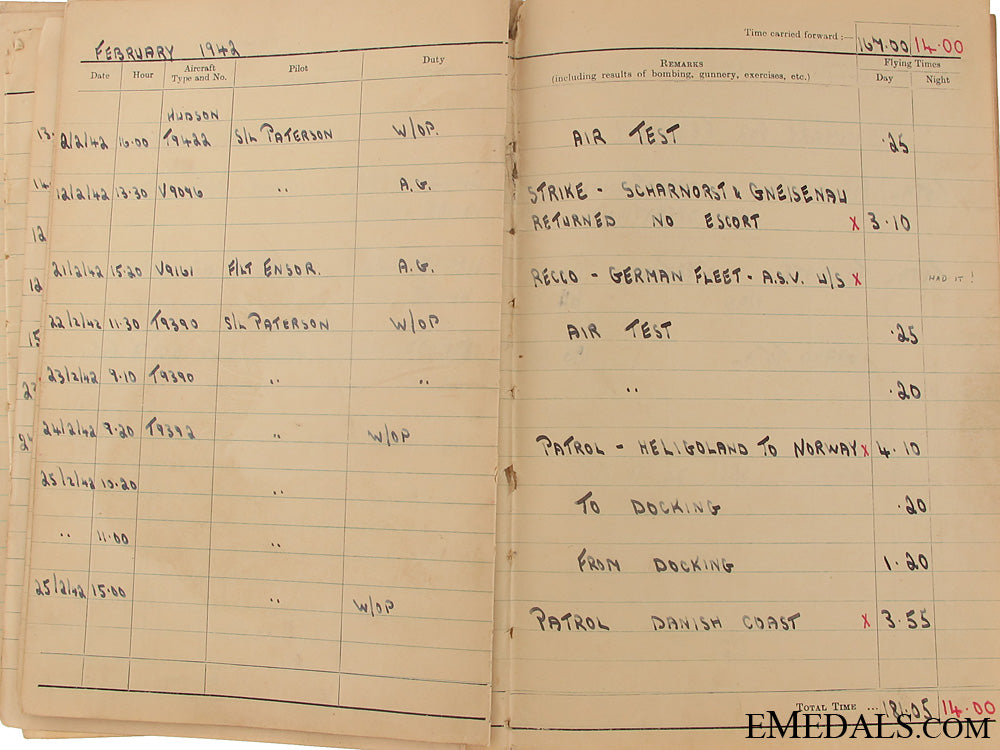 FEBRUARY 1942
Time carried forward :— 167.00 14.00
Date Hour Aircraft Type and No. Pilot Duty
REMARKS Flying Times
(including results of bombing, gunnery, exercises, etc.) Day Night
HUDSON
2/2/42 16.00 T9422 S/L PATERSON W/OP. AIR TEST .25
12/2/42 13.30 V9096 " A.G. STRIKE - SCHARNORST & GNEISENAU
RETURNED NO ESCORT X 3.10
21/2/42 15.20 V9161 F/LT ENSOR. A.G. RECCO - GERMAN FLEET - A.S.V. U/S X HAD IT!
22/2/42 11.30 T9390 S/L PATERSON W/OP AIR TEST .25
23/2/42 9.10 T9390 " " " .20
24/2/42 9.20 T9392 " W/OP PATROL - HELIGOLAND TO NORWAY X 4.10
25/2/42 10.20 " TO DOCKING .20
" 11.00 " FROM DOCKING 1.20
25/2/42 15.00 " W/OP PATROL DANISH COAST X 3.55
TOTAL TIME ... 181.05 14.00
EMEDALS.COM